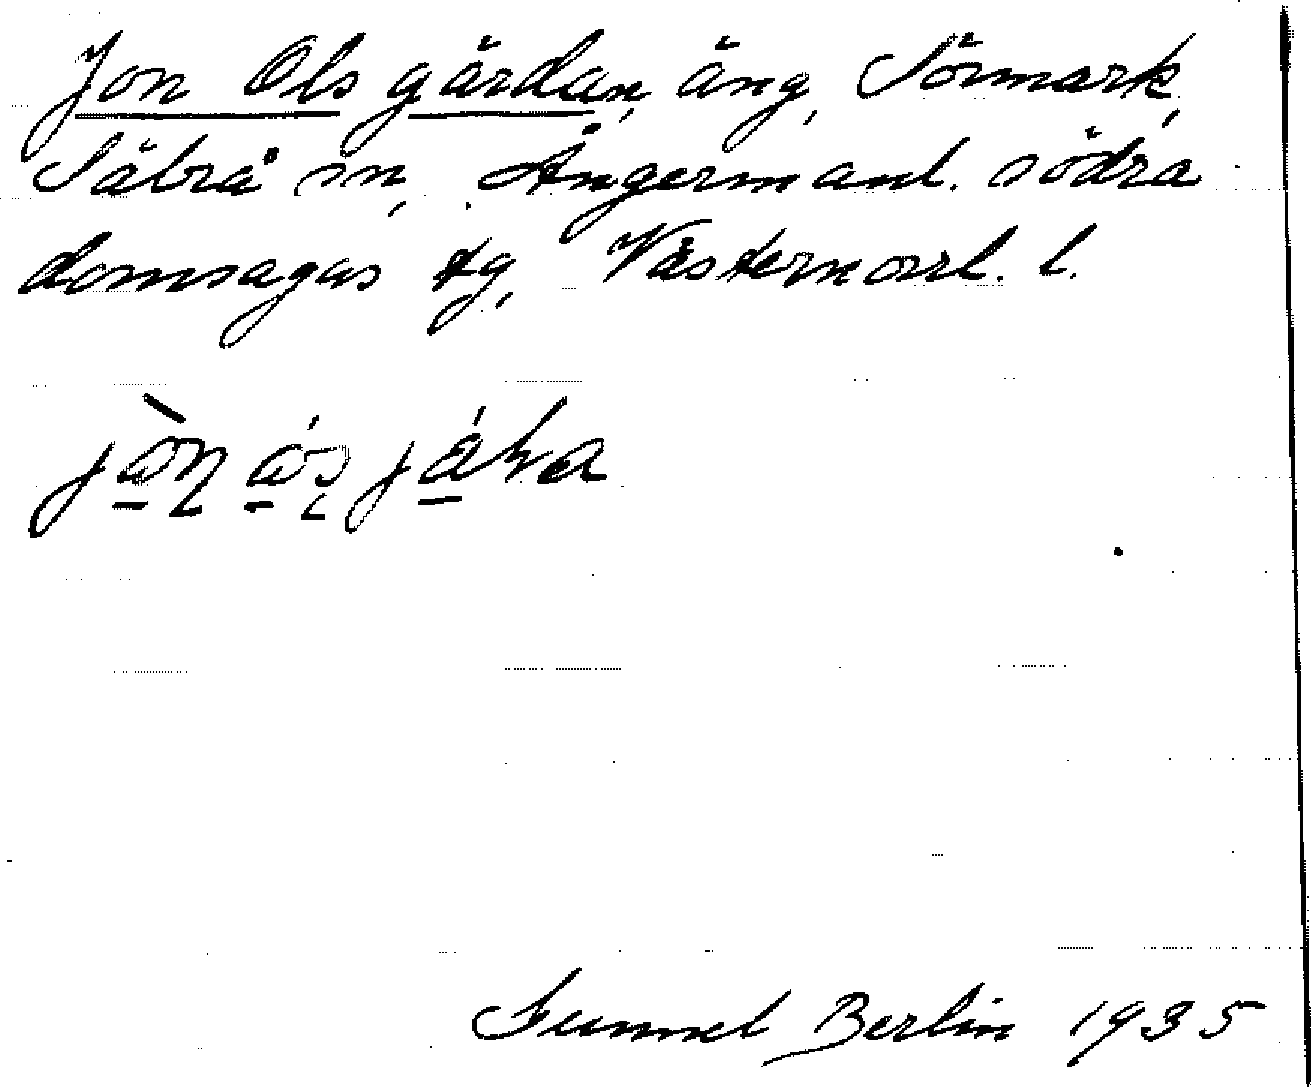 Jon Ols gärdan, äng, Sörmark,
Säbrå sn, Ångermanl. södra
domsagas tg, Västernorrl. l.
Gunnel Berlin 1935